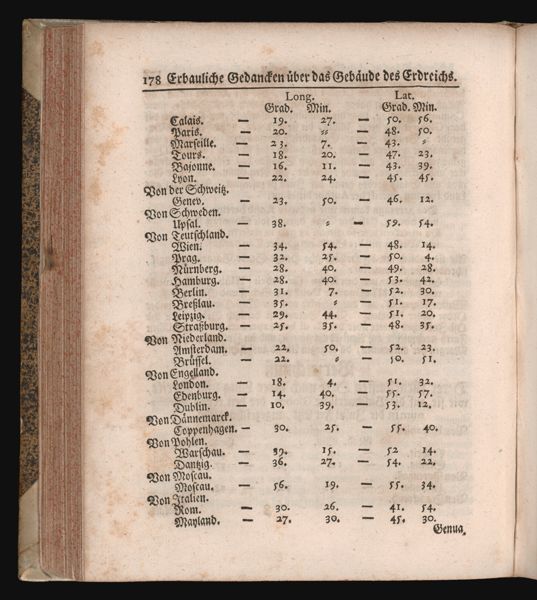 178 Erbauliche Gedancken über das Gebäude des Erdreichs.
Long. Lat.
Grad. Min. Grad. Min.
Calais. — 19. 27. — 50. 56.
Paris. — 20. = — 48. 50.
Marseille. — 23. 7. — 43. =
Tours. — 18. 20. — 47. 23.
Bajonne. — 16. 11. — 43. 39.
Lyon. — 22. 24. — 45. 45.
Von der Schweitz.
Genev. — 23. 50. — 46. 12.
Von Schweden.
Upsal. — 38. = — 59. 54.
Von Teutschland.
Wien. — 34. 54. — 48. 14.
Prag. — 32. 25. — 50. 4.
Nürnberg. — 28. 40. — 49. 28.
Hamburg. — 28. 40. — 53. 42.
Berlin. — 31. 7. — 52. 30.
Breßlau. — 35. = — 51. 17.
Leipzig. — 29. 44. — 51. 20.
Straßburg. — 25. 35. — 48. 35.
Von Niederland.
Amsterdam. — 22. 50. — 52. 23.
Brüssel. — 22. = — 50. 51.
Von Engelland.
London. — 18. 4. — 51. 32.
Edenburg. — 14. 40. — 55. 57.
Dublin. — 10. 39. — 53. 12.
Von Dännemarck.
Coppenhagen. — 30. 25. — 55. 40.
Von Pohlen.
Warschau. — 39. 15. — 52 14.
Dantzig. — 36. 27. — 54. 22.
Von Moscau.
Moscau. — 56. 19. — 55. 34.
Von Italien.
Rom. — 30. 26. — 41. 54.
Mayland. — 27. 30. — 45. 30.
Genua.